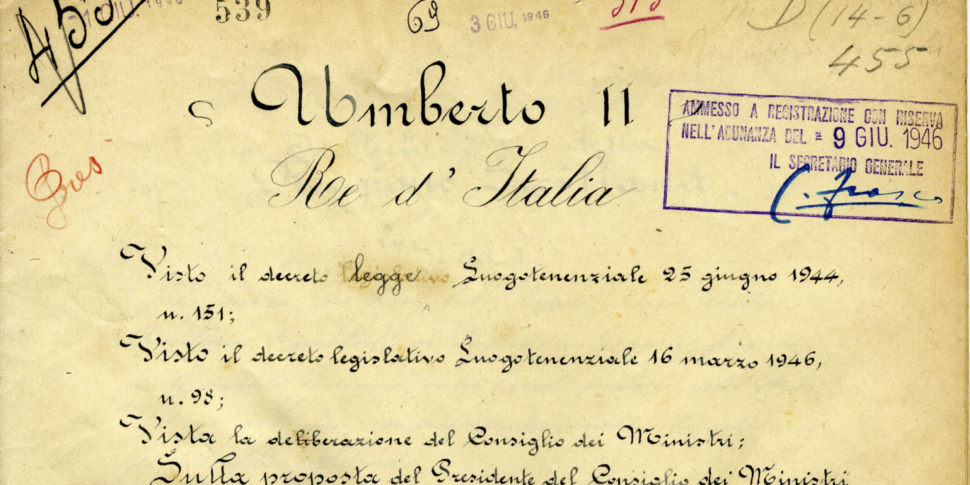 539
69
3 GIU. 1946
D (14-6)
455
Umberto II
Re d' Italia
AMMESSO A REGISTRAZIONE CON RISERVA
NELL'ADUNANZA DEL = 9 GIU. 1946
IL SEGRETARIO GENERALE
Visto il decreto legge Luogotenenziale 25 giugno 1944,
n. 151;
Visto il decreto legislativo Luogotenenziale 16 marzo 1946,
n. 98;
Vista la deliberazione del Consiglio dei Ministri;
Sulla proposta del Presidente del Consiglio dei Ministri